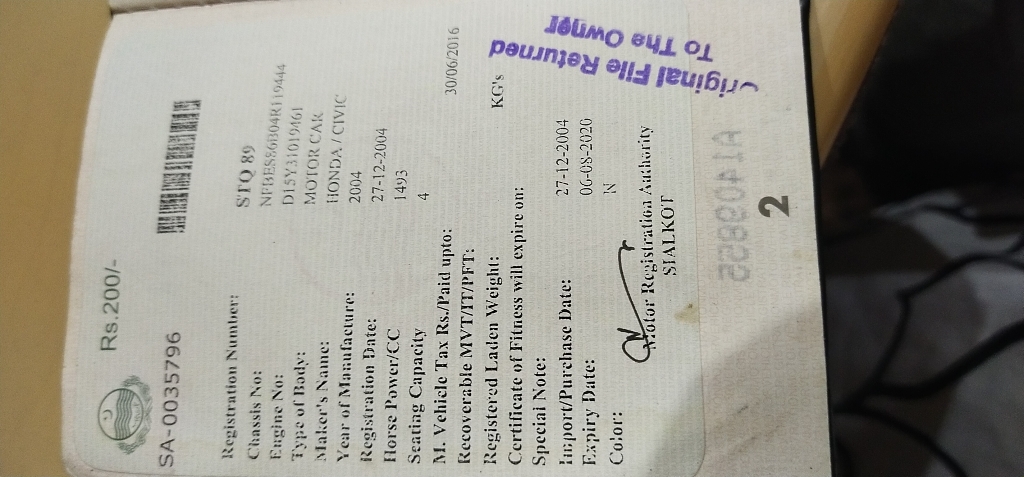 Rs.200/-
SA-0035796
Registration Number: STQ 89
Chassis No: NFBES86B04R119444
Engine No: D15Y31019461
Type of Body: MOTOR CAR
Maker's Name: HONDA / CIVIC
Year of Manufacture: 2004
Registration Date: 27-12-2004
Horse Power/CC 1493
Seating Capacity 4
M. Vehicle Tax Rs./Paid upto: 30/06/2016
Recoverable MVT/IT/PFT:
Registered Laden Weight: KG's
Certificate of Fitness will expire on:
Special Note:
Import/Purchase Date: 27-12-2004
Expiry Date: 06-08-2020
Color: N
Motor Registration Authority
SIALKOT
Original File Returned
To The Owner
A1409855
2